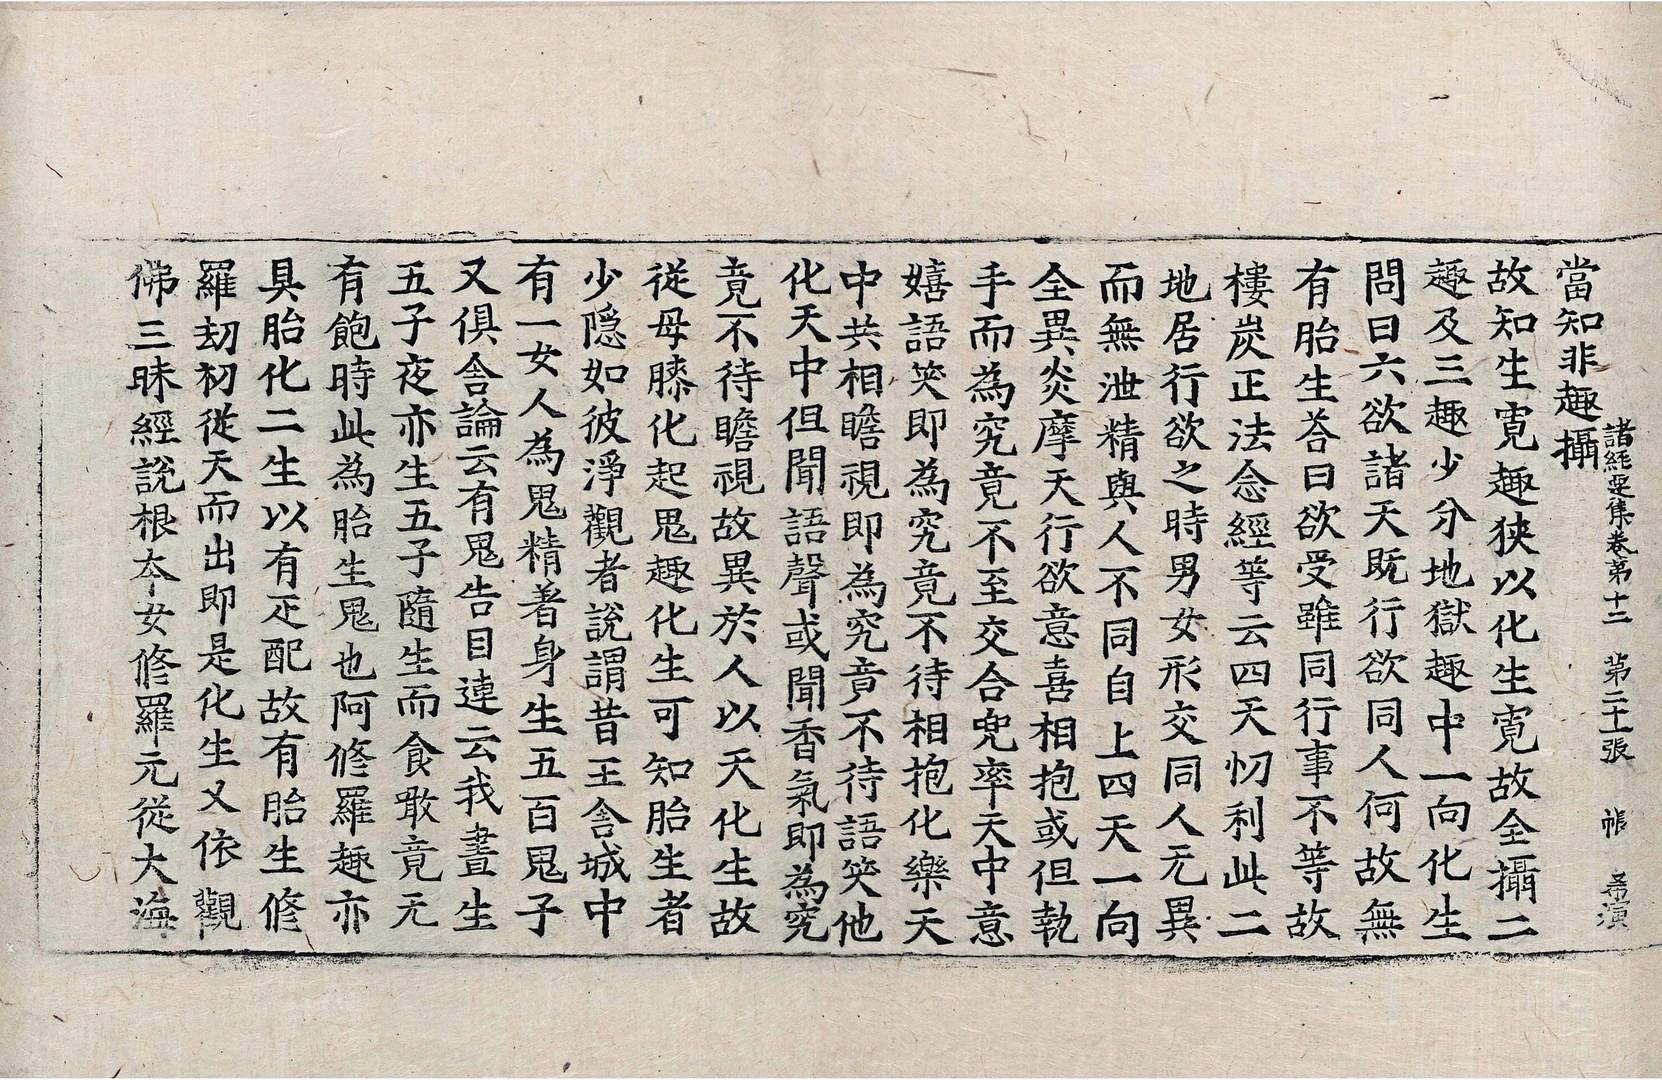 諸經要集卷第十二 第二十一張 帳 善演
當知非趣攝
故知生寬趣狹以化生寬故全攝二
趣及三趣少分地獄趣中一向化生
問曰六欲諸天既行欲同人何故無
有胎生荅曰欲受雖同行事不等故
樓炭正法念經等云四天忉利此二
地居行欲之時男女形交同人无異
而無泄精與人不同自上四天一向
全異炎摩天行欲意喜相抱或但執
手而為究竟不至交合兜率天中意
嬉語笑即為究竟不待相抱化樂天
中共相瞻視即為究竟不待語笑他
化天中但聞語聲或聞香氣即為究
竟不待瞻視故異於人以天化生故
從母膝化起鬼趣化生可知胎生者
少隱如彼淨觀者說謂昔王舍城中
有一女人為鬼精著身生五百鬼子
又俱舍論云有鬼告目連云我晝生
五子夜亦生五子隨生而食敢竟无
有飽時此為胎生鬼也阿修羅趣亦
具胎化二生以有疋配故有胎生修
羅劫初從天而出即是化生又依觀
佛三昧經說根夲女修羅元從大海